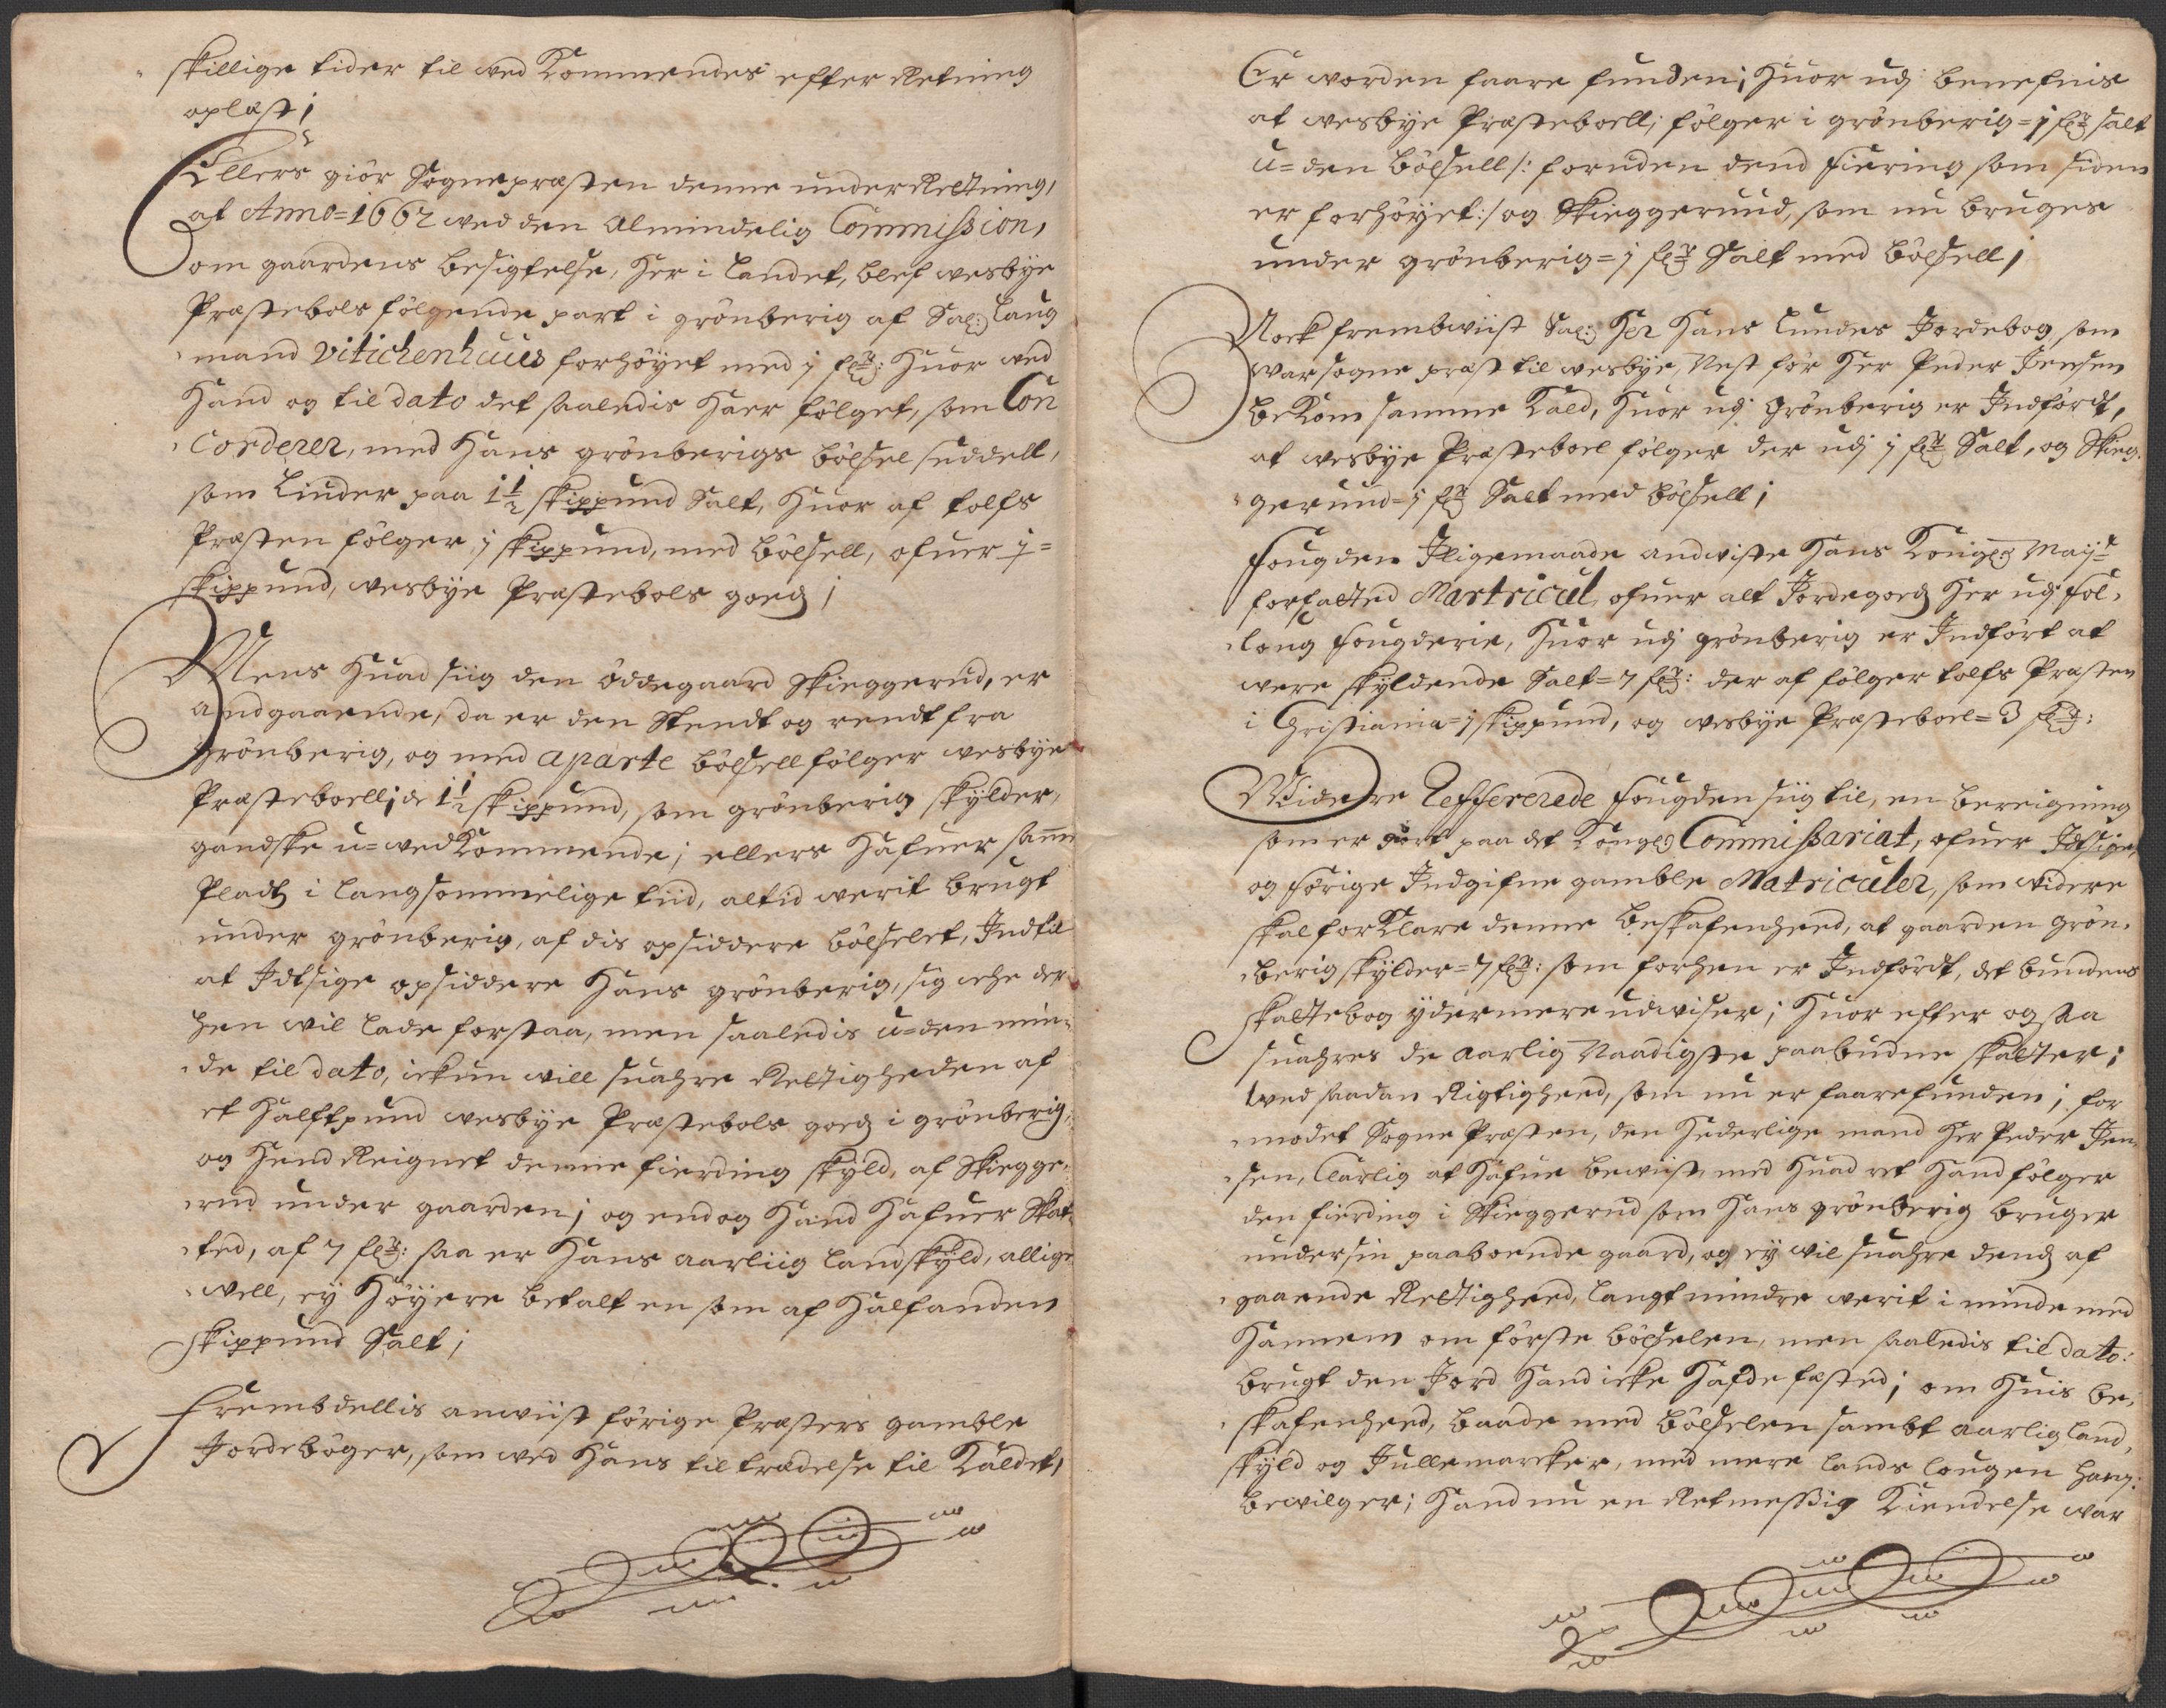 skillige tider til ved Kommendes efter Retning
oplæst;
Ellers giör Sognepræsten denne underRettning,
at Anno=1662 ved den Almindelig Commission,
om gaardens besigtelse, her i Landet, blef wesbÿe
Præstebols fölgende part i grönberig af Sal: Laug
mand vitichenhuus forhöÿet med j fr: huor ved
hand og til dato det saaledis haer fölget, som Con
corderer, med Hans grönberigs böxsel seddell,
som Liuder paa 1½ skippund Salt, huor af tolfs
Præsten fölger j skippund, med böxsell, ofuer j=
skippund, wesbÿe Præstebols goedz;
Mens huad siig den öddegaard Skieggerud, er
andgaaende, da er den Kiendt og rendt fra
grönberig, og med aparte böxsell fölger wesbÿe
Præsteboell; de 1½ skippund, som grönberig skÿlder,
gandske u=vedKommende; ellers hafuer samme
Pladtz i langsommelige tiid, altid werit brugt
under grönberig, af dis opsiddere böxselet, Indtil
at Itzige opsiddere Hans grönberig, sig iche der
hen wil lade forstaa, men saaledis u=den min-
de til dato, ickun will suahre Rettigheden af
et halftpund wesbÿe Præstebols goedz i grönberig,
og hend Reignet denne fierding skÿld, af Skiegge-
rud under gaarden; og endog hand hafuer Skat-
ted, af 7 fr: saa er hans aarliig landskÿld, allige-
vell, eÿ höÿere betalt en som af halfanden
skippund Salt;
Frembdellis anwiist förige Præsters gamble
Jordeböger, som ved hans tiltrædelse til Kaldet,
Er worden faare funden; huor udj benefnis
at wesbÿe Præsteboell, fölger i grönberig=j fr: salt
u=den böxsell /: foruden dend fiering som siden
er forhöÿet :/ og Skieggerund, som nu bruges
under grönberig=j fr: Salt med böxsell;
Nock frembwiist Sal: Her Hans Lundes Jordebog, som
war sogne præst til wesbÿe, Nest för Her Peder Jensen
beKom samme Kald, huor udj Grönberig er Indfördt,
at wesbÿe Præsteboel fölger der udj j fr: Salt, og Skieg-
gerund=j fr: Salt med böxsell;
Fougden Iligemaade andviste Hans Kongl: Maÿ:
forfatted Martricul, ofuer alt Jordegoedz her udj Fol-
loug fougderie, huor udj grönberig er Indfört at
were skÿldende Salt=7 fr: der af fölger tolfs Præsten
i Christiania=j skippund, og wesbÿe Præsteboel=3 fr:
Widere Refferede fougden siig til, en bereigning
som er giort paa det Kongl: Commissariat, ofuer Itzige,
og förige Indgifne gamble Matriculer, som videre
skal forKlare denne beskafenheed, at gaarden grön-
berig skÿlder=7 fr: som forhen er Indfördt, det bundens
skattebog ÿdermere udviser; huor efter ogsaa
suahres de Aarlig Naadigste paabudne skatter;
wed saadan Rigtigheed, som nu er faarefunden; for
modet Sogne Præsten, den hederlige mand Her Peder Jen-
sen, Clarlig at hafue bewiist, med huad ret hand fölger
den fierding i Skieggerud som Hans grönberig bruger
under sin paaboende gaard, og eÿ vil suahre dendz af
gaaende Rettigheed, langt mindre werit i minde med
hannem om förste böxselen, men saaledis til dato:
brugt den Jord hand icke hafde fæsted; om huis be-
skafenheed, baade med böxselen sambt aarlig land-
skÿld og Jullemarcker, med mere lands lougen ham:
bewilger; hand nu en Retmessig Kiendelse war